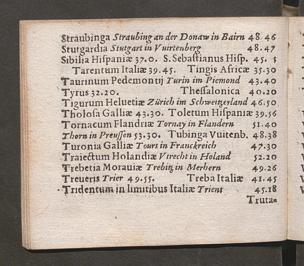 Straubinga Straubing an der Donaw in Bairn 48.46
Stutgardia Stutgart in Wirtenberg 48.47
Sibilia Hispaniæ 37.0. S. Sebastianus Hisp. 45.5
Tarentum Italiæ 39.45. Tingis Africæ 35.30
Taurinum Pedemontij Turin im Piemond 43.40
Tyrus 32.20. Thessalonica 40.20
Tigurum Helvetiæ Zürich im Schweitzerland 46.50
Tholosa Galliæ 43.30. Toletum Hispaniæ 39.56
Tornacum Flandriæ Tornay in Flandern 51.40
Thorn in Preussen 53.30. Tubinga Vuitenb. 48.38
Turonia Galliæ Tours in Franckreich 47.30
Traiectum Holandiæ Vtrecht in Holand 52.20
Trebetia Moraviæ Trebitz in Merhern 49.26
Treveris Trier 49.55. Treba Italiæ 41.45
Tridentum in limitibus Italiæ Trient 45.18
Truta-